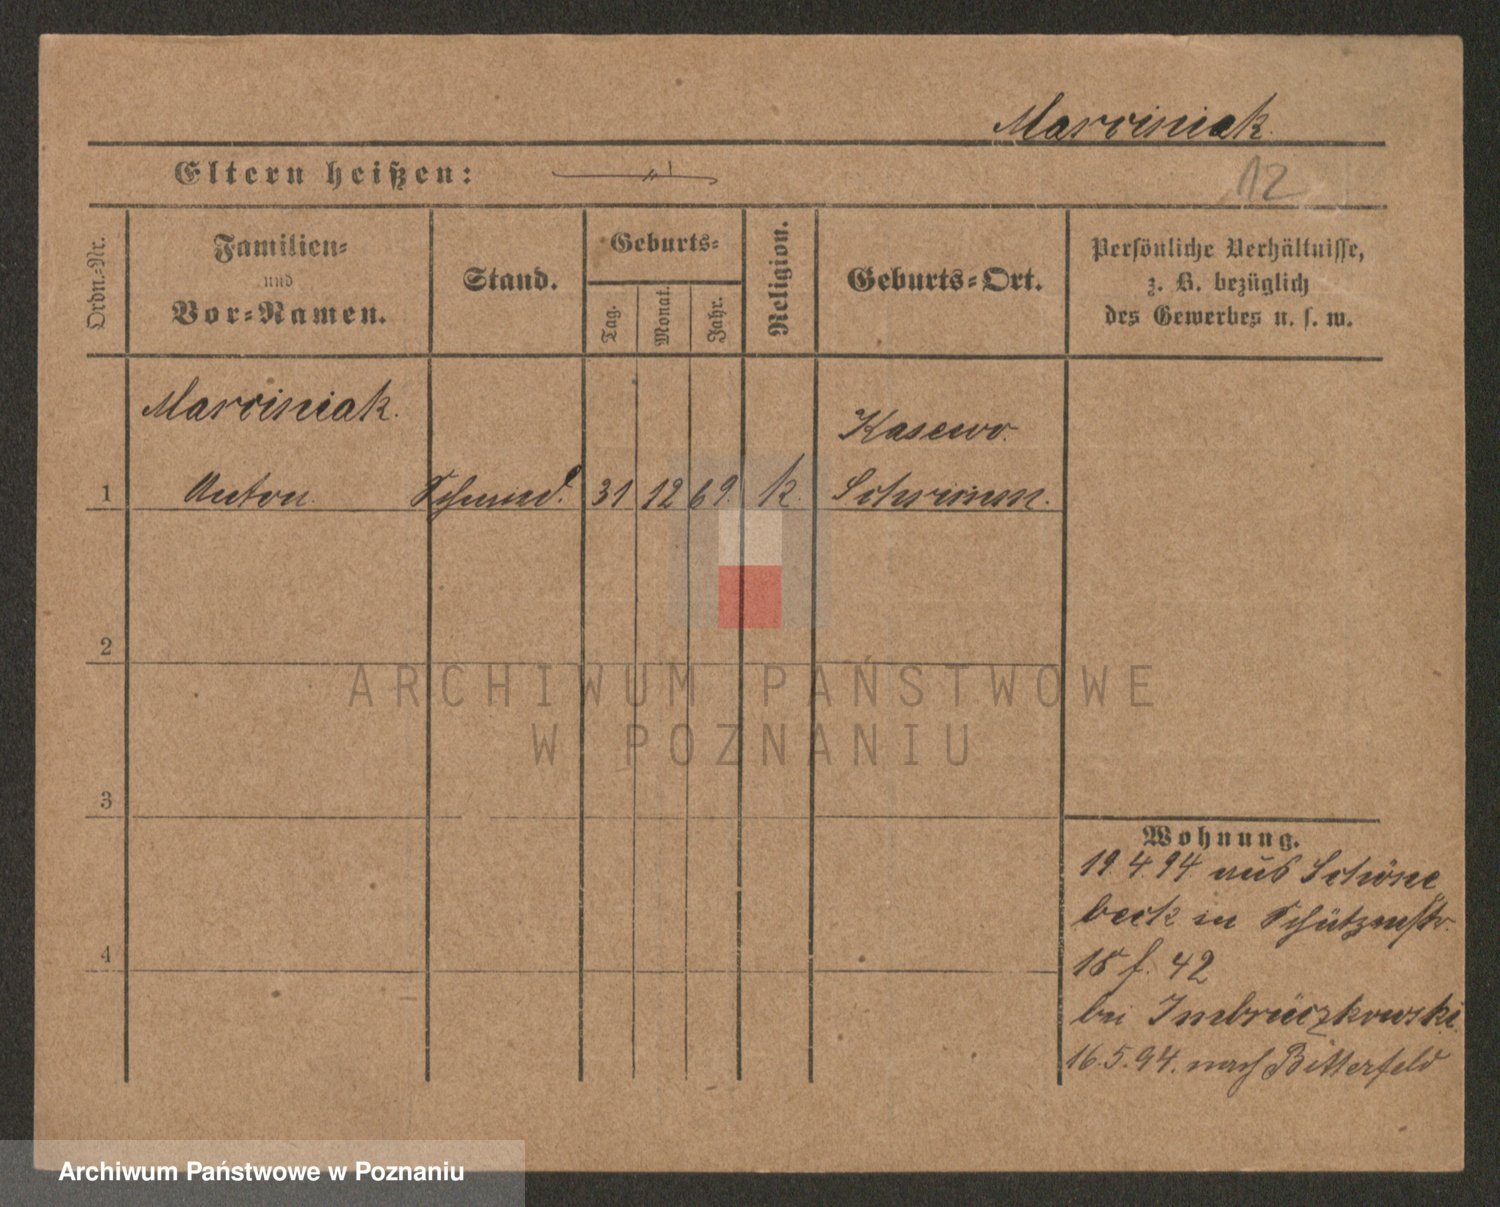 Marciniak.
Eltern heißen:
12
Ordn.-Nr.
Familien-
und
Vor-Namen.
Stand.
Geburts-
Tag.
Monat.
Jahr.
Religion.
Geburts-Ort.
Persönliche Verhältnisse,
z. B. bezüglich
des Gewerbes u. s. w.
Marciniak.
Kasewo.
1 Anton Schmied. 31 12 69. k. Schrimm.
2
ARCHIWUM PAŃSTWOWE
W POZNANIU
3
Wohnung.
19.4.94 aus Schöne
beck in Schützenstr.
4
bei
16.5.94. nach Bitterfeld
Archiwum Państwowe w Poznaniu